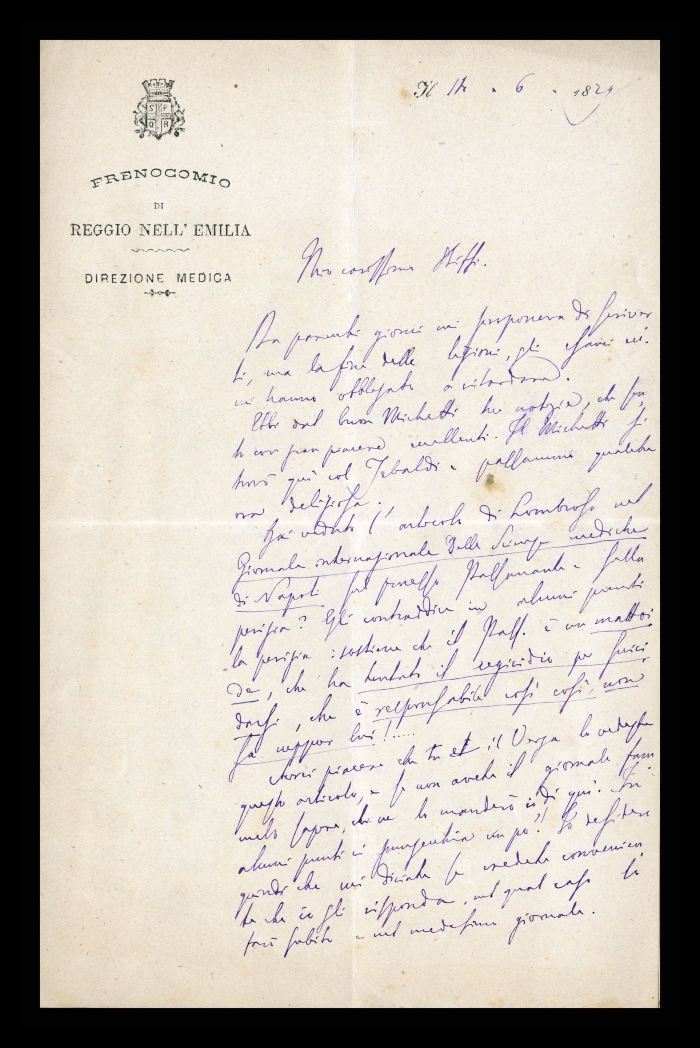 S P
Q R
Il 14 . 6 . 1879
FRENOCOMIO
DI
REGGIO NELL' EMILIA
DIREZIONE MEDICA
Mio carissimo Biffi.
Da parecchi giorni mi proponeva di scriver
ti, ma la fine delle lezioni, gli esami
mi hanno obbligato a ritardare.
Ebbi dal buon Michetti tue notizie, che sen
to con gran piacere eccellenti. Il Michetti si
trovò qui col Tebaldi e passammo qualche
ora deliziosa.
Hai veduto l'articolo di Lombroso nel
Giornale internazionale delle Scienze mediche
di Napoli sul processo Passanante e sulla
perizia? Egli contraddice in alcuni punti
la perizia: sostiene che il Pass. è un mattoi
de, che ha tentato il regicidio per suici
darsi, che è responsabile così così, non
sa neppur lui!.....
Avrei piacere che tu et il Verga lo vedeste
questo articolo, e se non avete il giornale fam
melo sapere, che ve lo manderò io di qui. In
alcuni punti ci punzecchia un po'! Io desidero
quindi che mi diciate se credete convenien
te che io gli risponda, nel qual caso lo
farò subito e nel medesimo giornale.